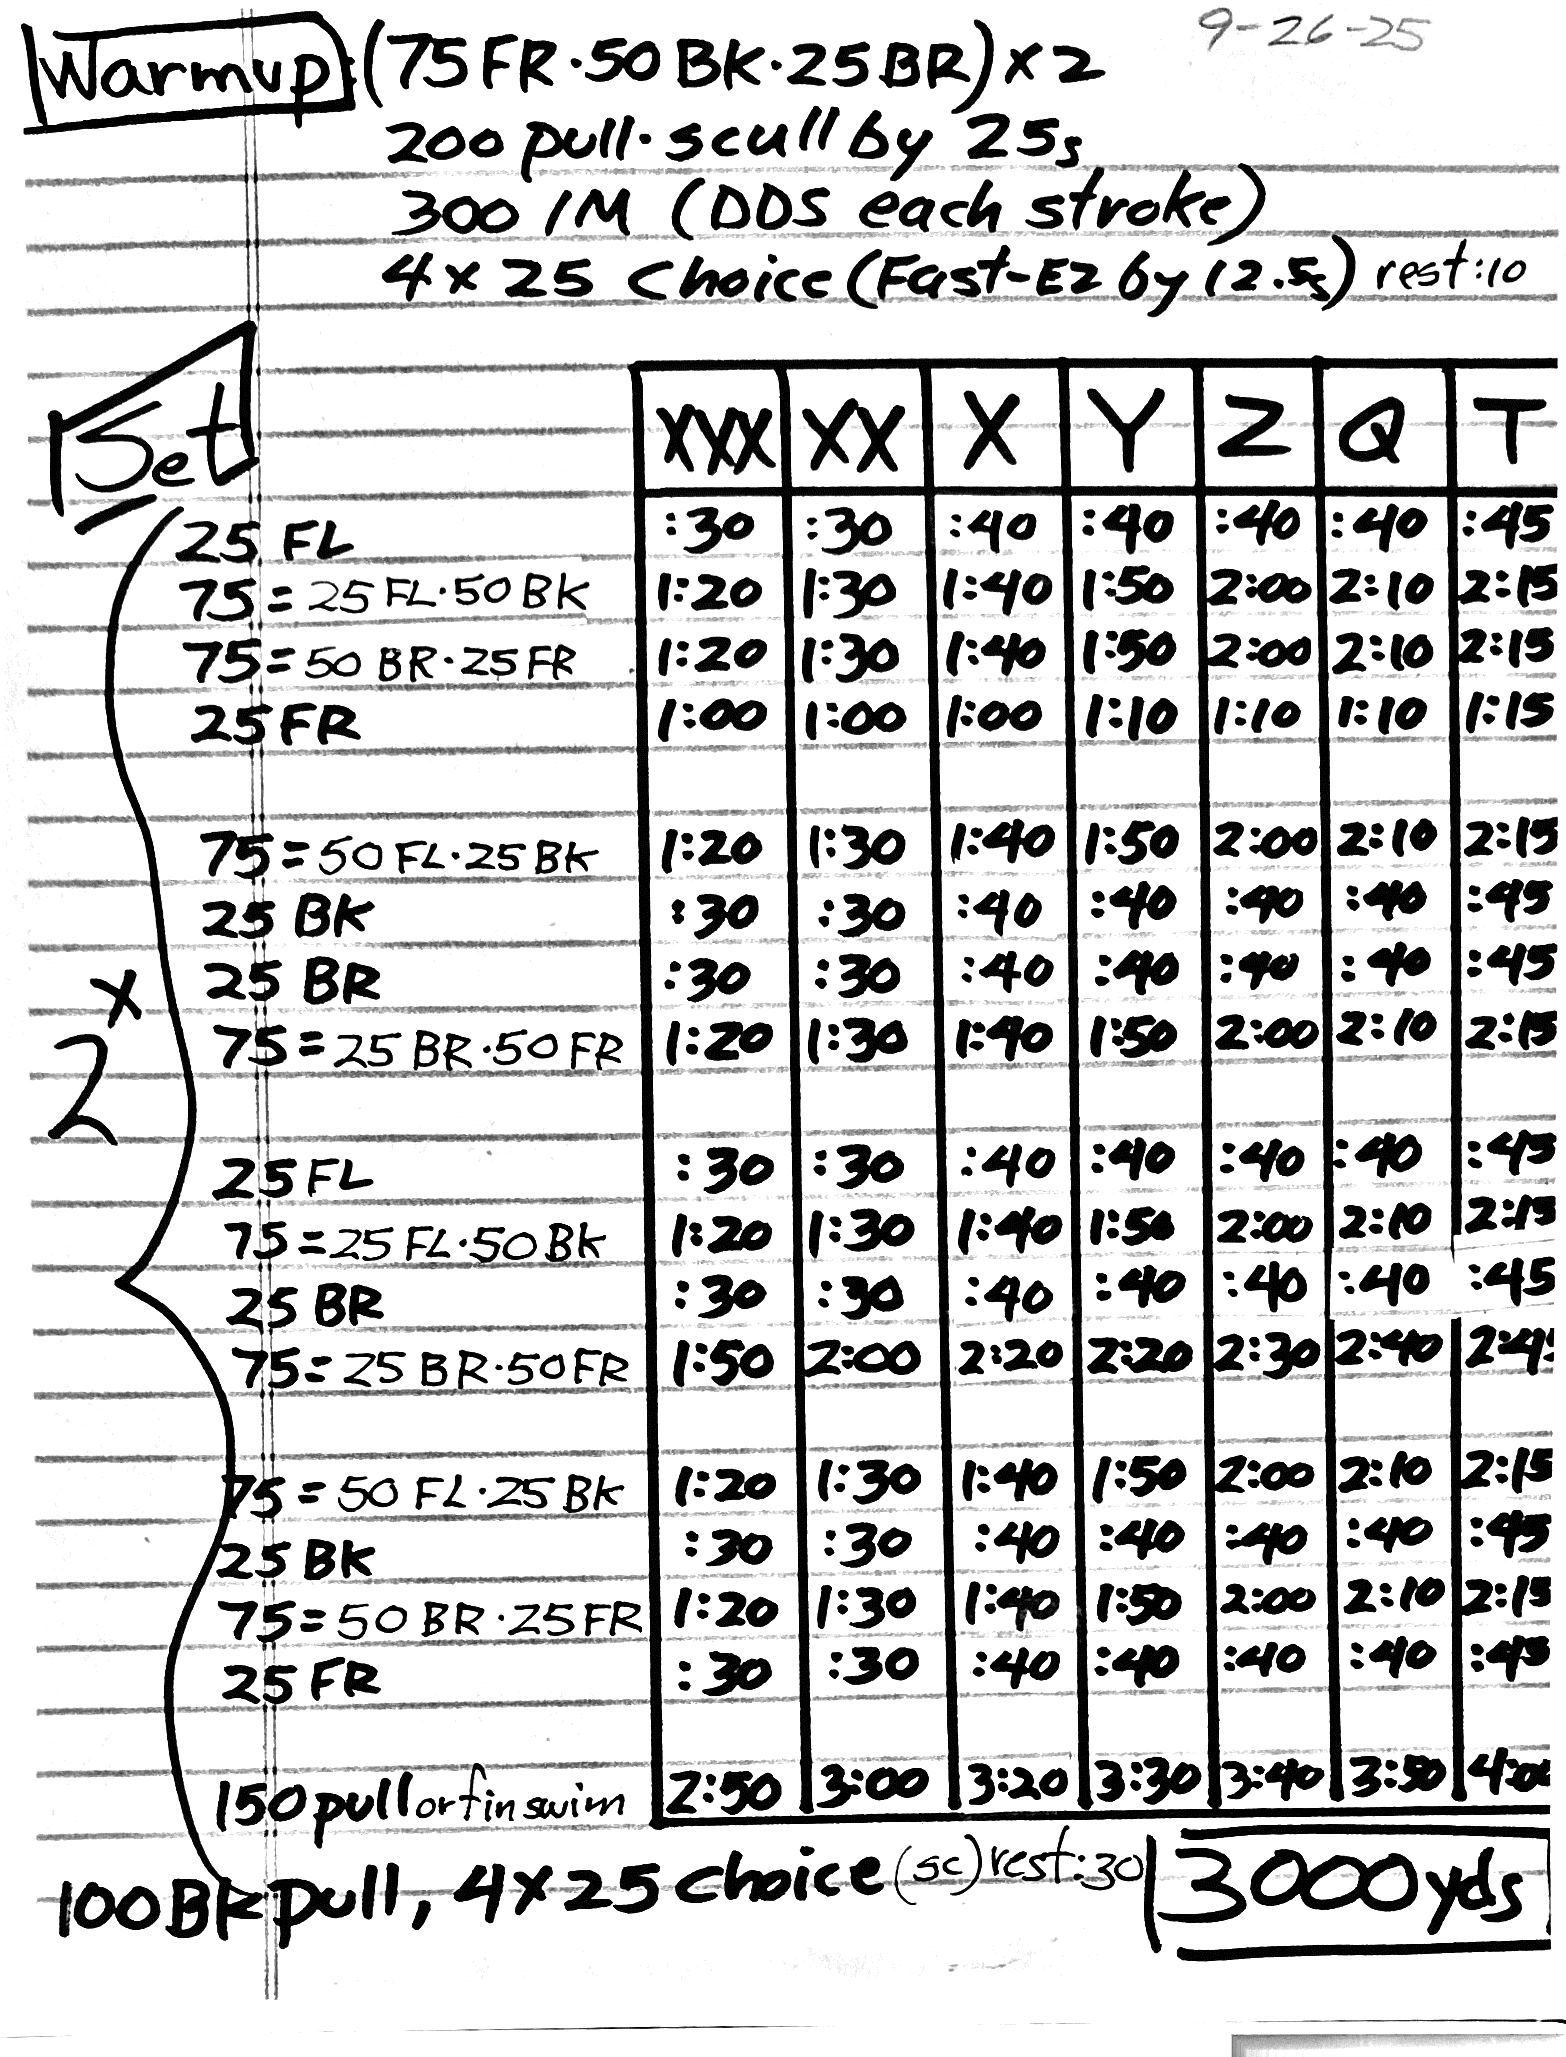 9-26-25
Warmup: (75 FR·50 BK·25 BR) x 2
200 pull·scull by 25s
300 IM (DDS each stroke)
4 x 25 Choice (Fast-EZ by 12.5s) rest :10
Set
XXX XX X Y Z Q T
25 FL :30 :30 :40 :40 :40 :40 :45
75 = 25 FL·50 BK 1:20 1:30 1:40 1:50 2:00 2:10 2:15
75 = 50 BR·25 FR 1:20 1:30 1:40 1:50 2:00 2:10 2:15
25 FR 1:00 1:00 1:00 1:10 1:10 1:10 1:15
75 = 50 FL·25 BK 1:20 1:30 1:40 1:50 2:00 2:10 2:15
25 BK :30 :30 :40 :40 :40 :40 :45
25 BR :30 :30 :40 :40 :40 :40 :45
2x
75 = 25 BR·50 FR 1:20 1:30 1:40 1:50 2:00 2:10 2:15
25 FL :30 :30 :40 :40 :40 :40 :45
75 = 25 FL·50 BK 1:20 1:30 1:40 1:50 2:00 2:10 2:15
25 BR :30 :30 :40 :40 :40 :40 :45
75 = 25 BR·50 FR 1:50 2:00 2:20 2:20 2:30 2:40 2:45
75 = 50 FL·25 BK 1:20 1:30 1:40 1:50 2:00 2:10 2:15
25 BK :30 :30 :40 :40 :40 :40 :45
75 = 50 BR·25 FR 1:20 1:30 1:40 1:50 2:00 2:10 2:15
25 FR :30 :30 :40 :40 :40 :40 :45
150 pull or fin swim 2:50 3:00 3:20 3:30 3:40 3:50 4:00
100 Bk pull, 4 x 25 choice (sc) rest :30
3000 yds